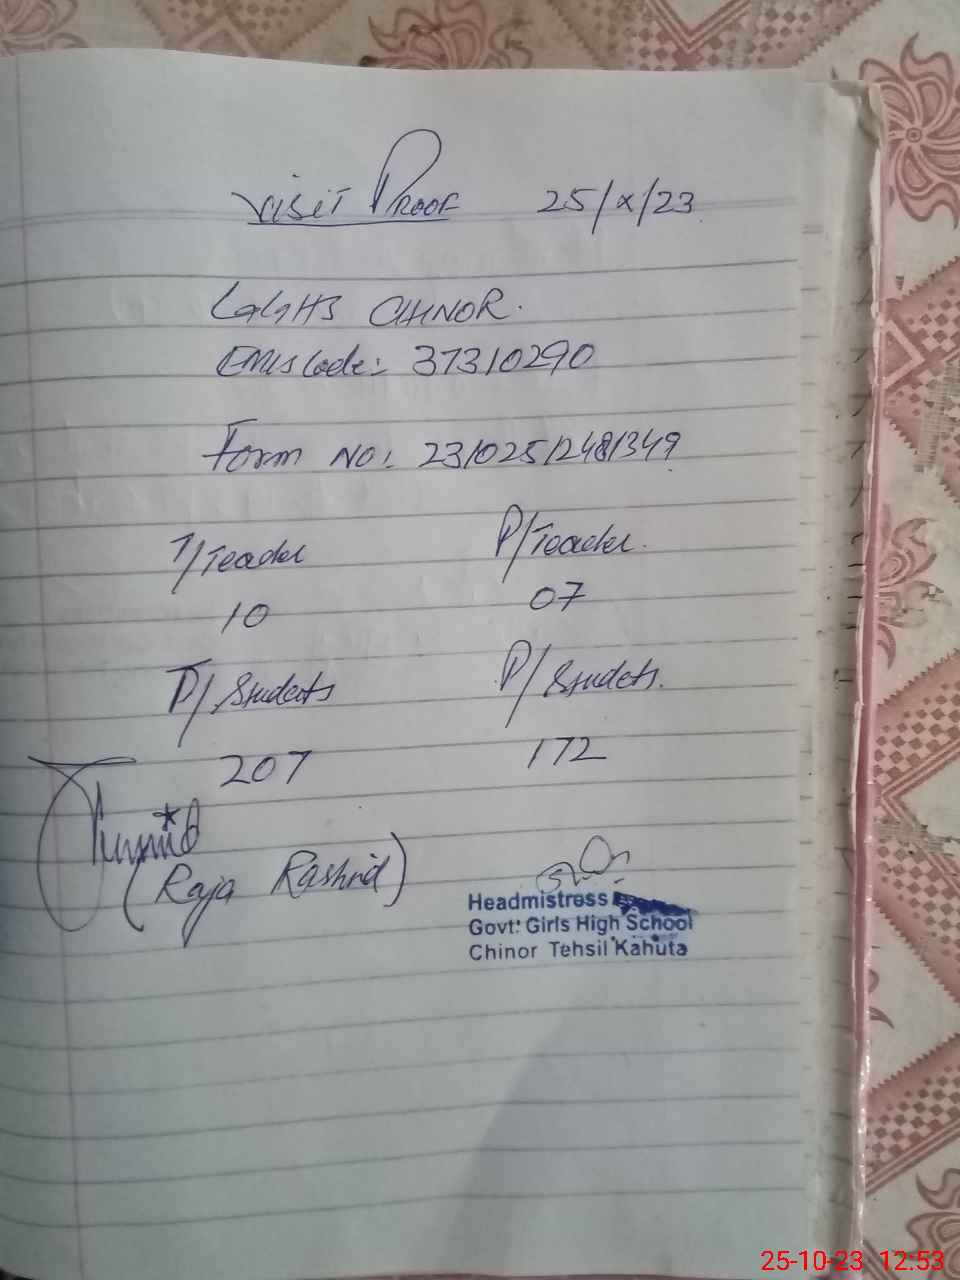 Visit Proof 25/x/23
GGHS CHINOR.
EMIS Code: 37310290
Form No: 23102512481349
T/Teacher P/Teacher.
10 07
T/Students P/Students.
207 172
(Raja Rashid)
Headmistress
Govt: Girls High School
Chinor Tehsil Kahuta
25-10-23 12:53